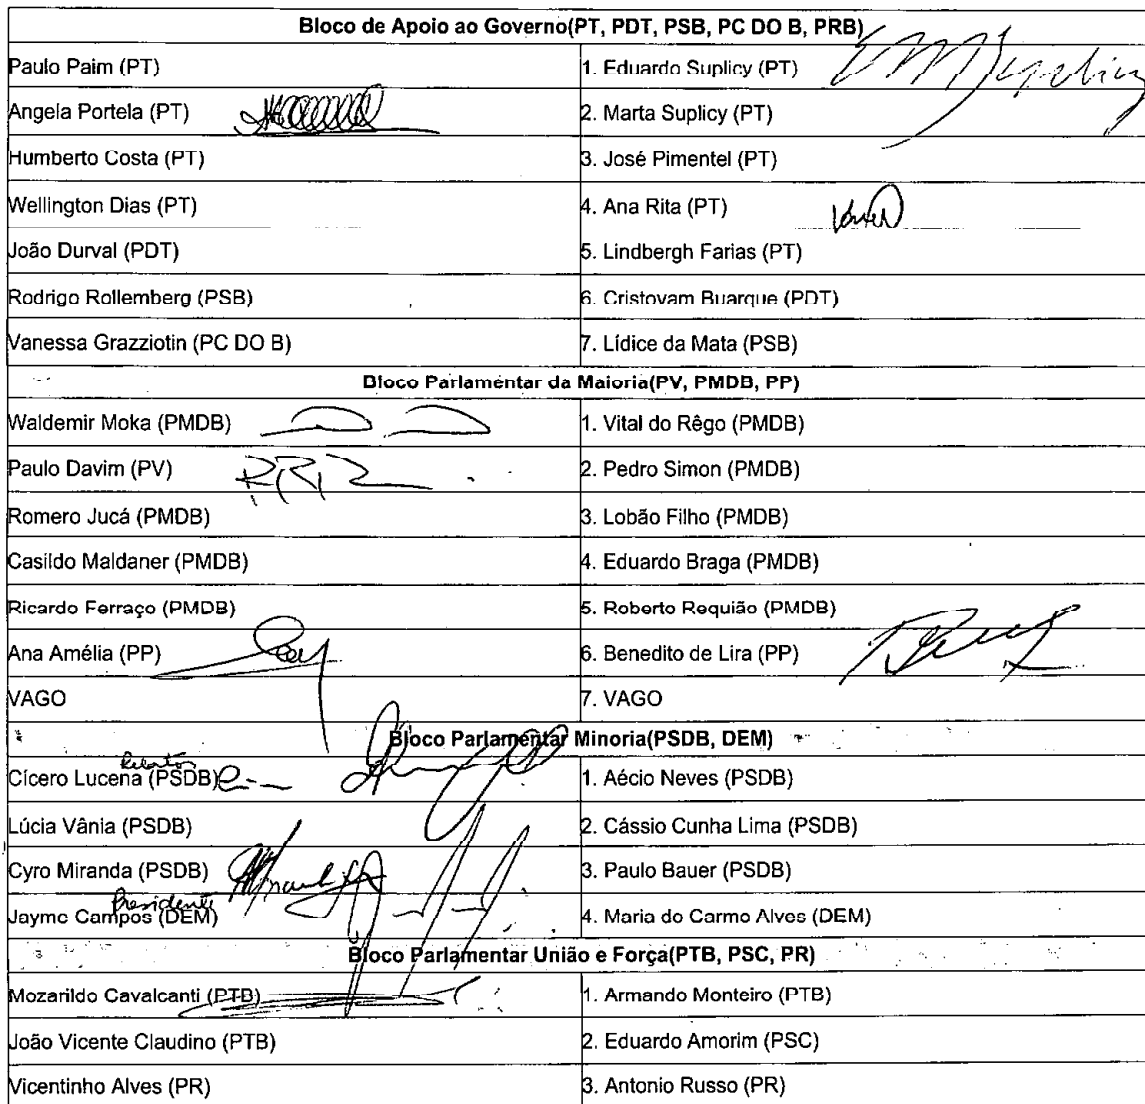 Bloco de Apoio ao Governo(PT, PDT, PSB, PC DO B, PRB)
Paulo Paim (PT) 1. Eduardo Suplicy (PT)
Angela Portela (PT) 2. Marta Suplicy (PT)
Humberto Costa (PT) 3. José Pimentel (PT)
Wellington Dias (PT) 4. Ana Rita (PT)
João Durval (PDT) 5. Lindbergh Farias (PT)
Rodrigo Rollemberg (PSB) 6. Cristovam Buarque (PDT)
Vanessa Grazziotin (PC DO B) 7. Lídice da Mata (PSB)
Bloco Parlamentar da Maioria(PV, PMDB, PP)
Waldemir Moka (PMDB) 1. Vital do Rêgo (PMDB)
Paulo Davim (PV) 2. Pedro Simon (PMDB)
Romero Jucá (PMDB) 3. Lobão Filho (PMDB)
Casildo Maldaner (PMDB) 4. Eduardo Braga (PMDB)
Ricardo Ferraço (PMDB) 5. Roberto Requião (PMDB)
Ana Amélia (PP) 6. Benedito de Lira (PP)
VAGO 7. VAGO
Bloco Parlamentar Minoria(PSDB, DEM)
Relator
Cícero Lucena (PSDB) 1. Aécio Neves (PSDB)
Lúcia Vânia (PSDB) 2. Cássio Cunha Lima (PSDB)
Cyro Miranda (PSDB) 3. Paulo Bauer (PSDB)
Presidente
Jayme Campos (DEM) 4. Maria do Carmo Alves (DEM)
Bloco Parlamentar União e Força(PTB, PSC, PR)
Mozarildo Cavalcanti (PTB) 1. Armando Monteiro (PTB)
João Vicente Claudino (PTB) 2. Eduardo Amorim (PSC)
Vicentinho Alves (PR) 3. Antonio Russo (PR)